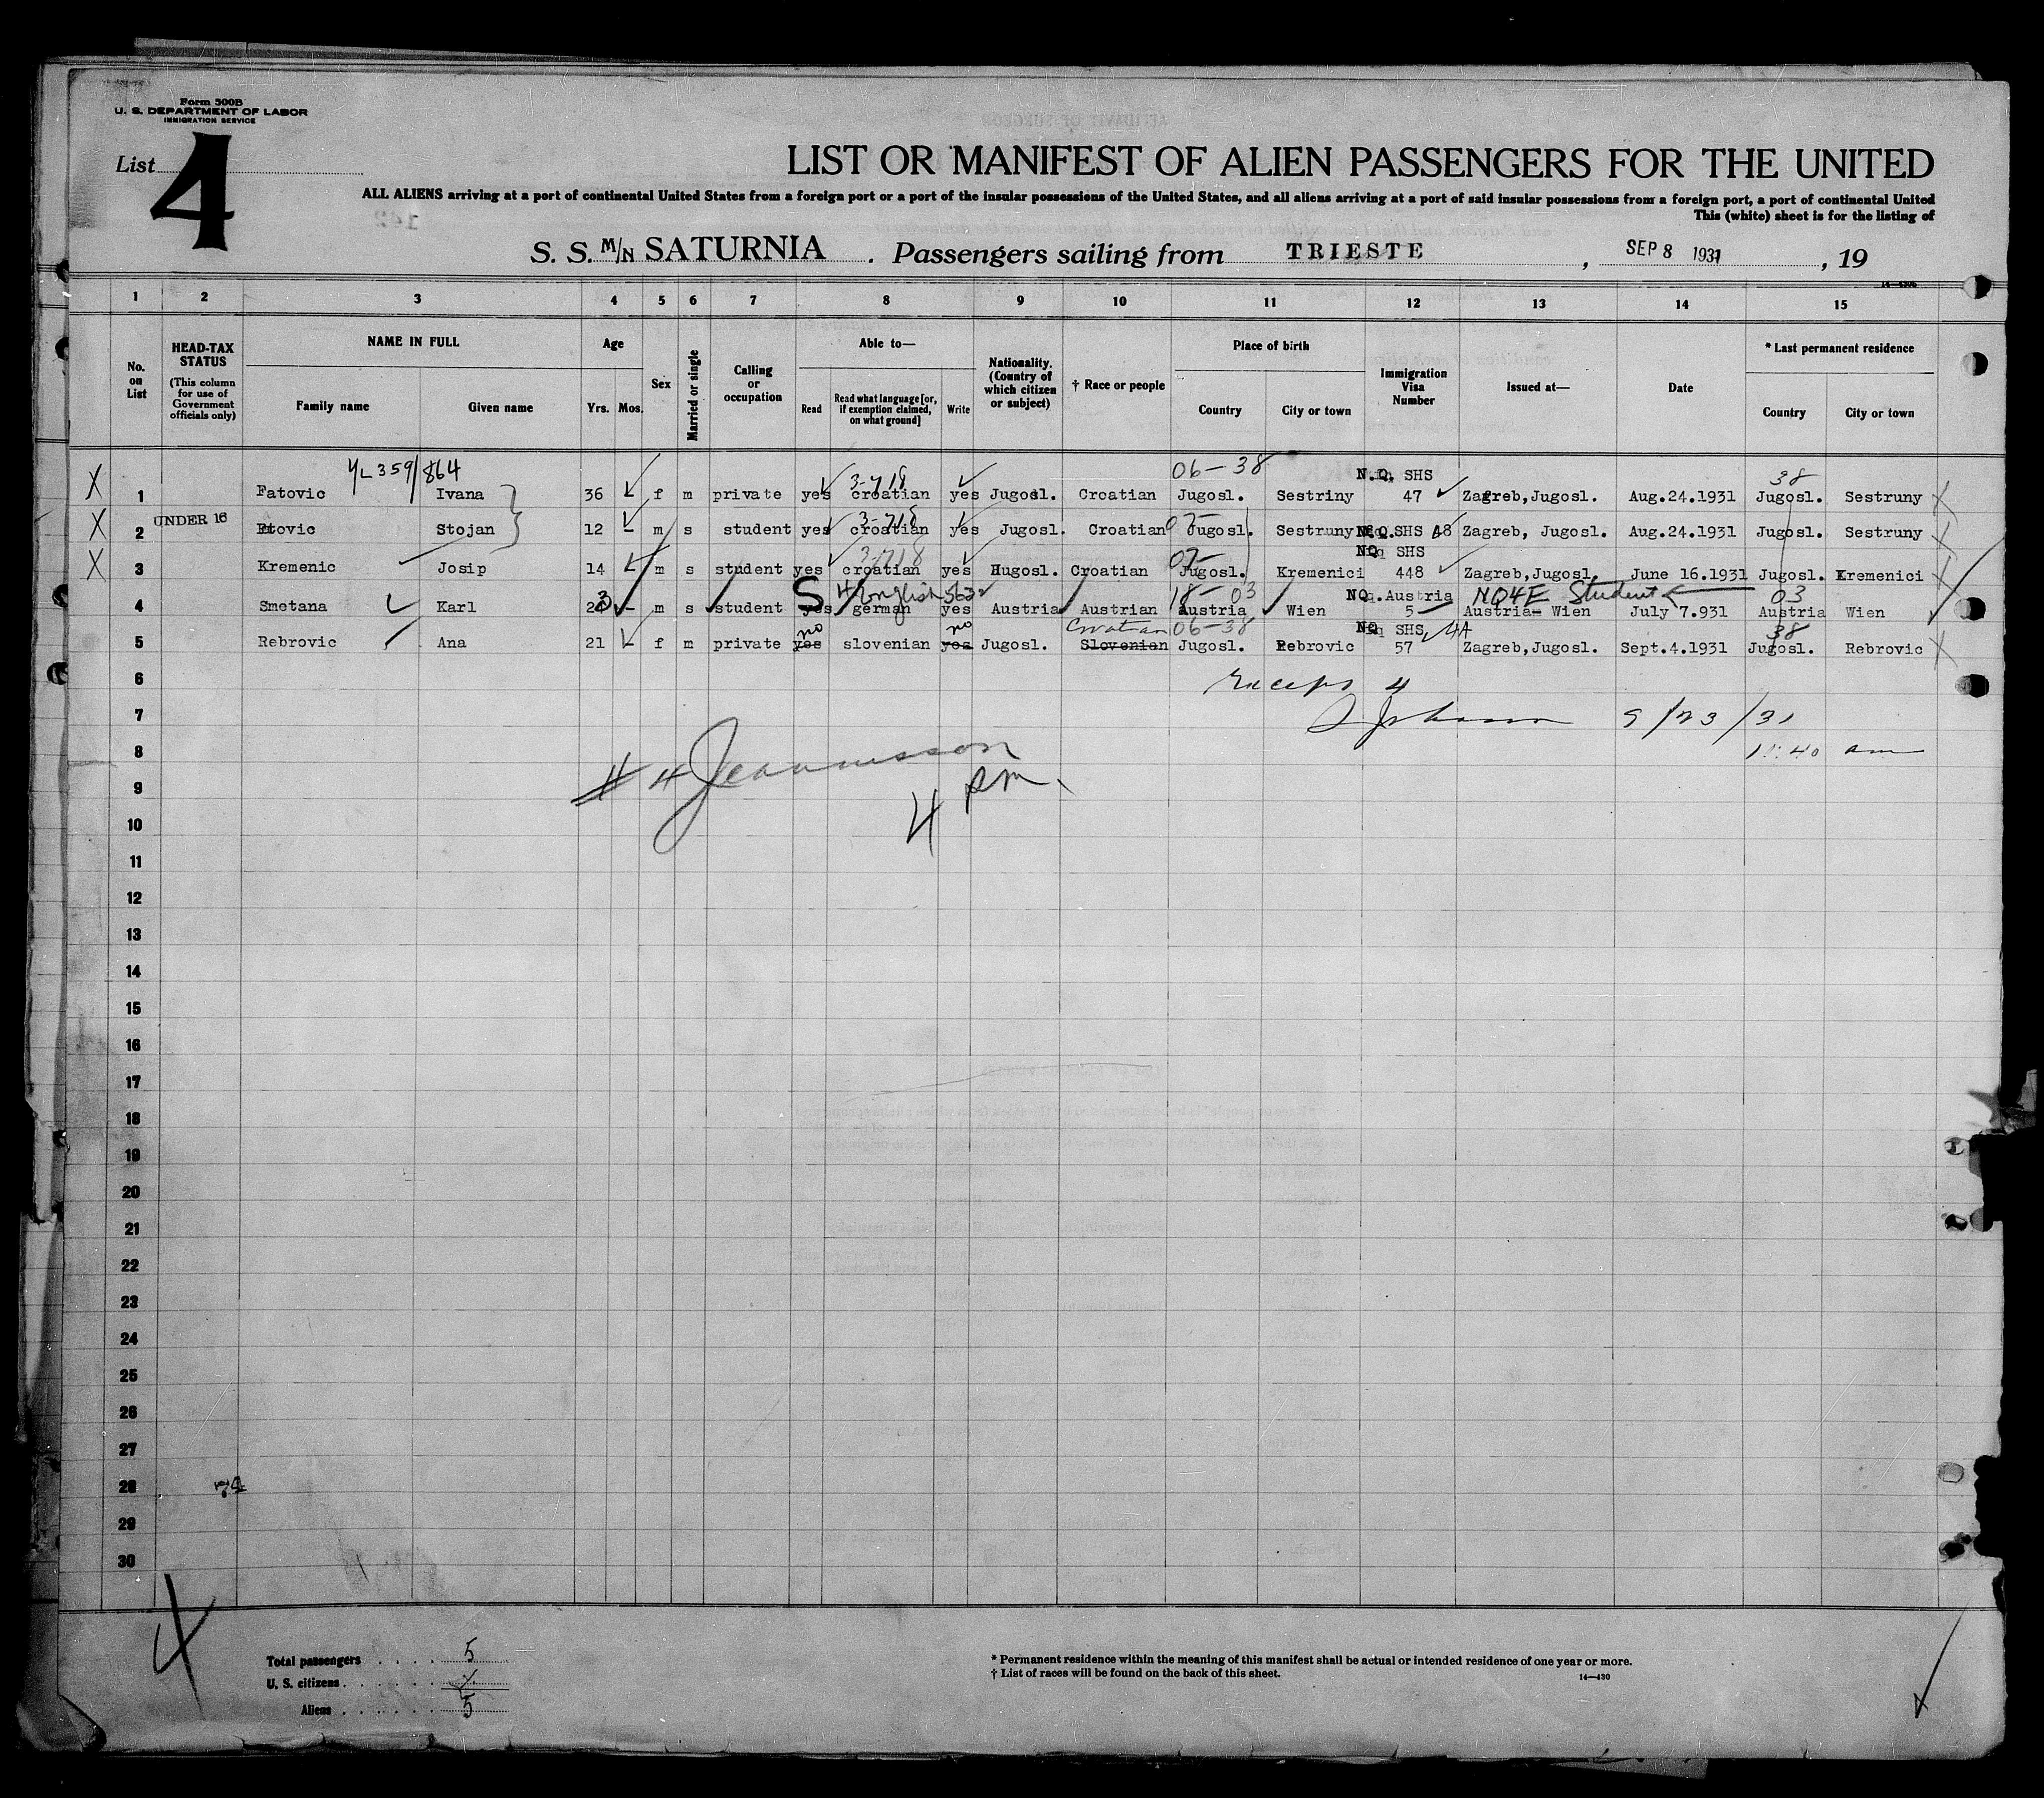 Form 500B
U. S. DEPARTMENT OF LABOR
IMMIGRATION SERVICE
List 4
LIST OR MANIFEST OF ALIEN PASSENGERS FOR THE UNITED
ALL ALIENS arriving at a port of continental United States from a foreign port or a port of the insular possessions of the United States, and all aliens arriving at a port of said insular possessions from a foreign port, a port of continental United
This (white) sheet is for the listing of
S. S. M/N SATURNIA . Passengers sailing from TRIESTE , SEP 8 1931 , 19
1 2 3 4 5 6 7 8 9 10 11 12 13 14 15
No. on List
HEAD-TAX STATUS (This column for use of Government officials only)
NAME IN FULL Family name Given name
Age Yrs. Mos.
Sex
Married or single
Calling or occupation
Able to— Read Read what language [or, if exemption claimed, on what ground] Write
Nationality. (Country of which citizen or subject)
† Race or people
Place of birth Country City or town
Immigration Visa Number
Issued at—
Date
* Last permanent residence Country City or town
4L359/864 3-718 06-38 N.Q. SHS 38
X 1 Fatovic Ivana 36 f m private yes croatian yes Jugosl. Croatian Jugosl. Sestriny 47 Zagreb,Jugosl. Aug.24.1931 Jugosl. Sestruny
3-718 07-
X 2 UNDER 16 Ftovic Stojan 12 – m s student yes croatian yes Jugosl. Croatian Jugosl. Sestruny N.Q. SHS 48 Zagreb, Jugosl. Aug.24.1931 Jugosl. Sestruny
3-718 07- NQ SHS
X 3 Kremenic Josip 14 – m s student yes croatian yes Hugosl. Croatian Jugosl. Kremenici 448 Zagreb,Jugosl. June 16.1931 Jugosl. Kremenici
S 4 English 563 18-03 NQ. Austria NQ4E Student 03
4 Smetana Karl 23 – m s student yes german yes Austria Austrian Austria Wien 5 Austria– Wien July 7.931 Austria Wien
no no Croatian 06-38 NQ SHS 4A 38
5 Rebrovic Ana 21 – f m private yes slovenian yes Jugosl. Slovenian Jugosl. Rebrovic 57 Zagreb,Jugosl. Sept.4.1931 Jugosl. Rebrovic
6 4
7 9/23/31
8 11:40 am
# 4
9 pm.
10 4
11
12
13
14
15
16
17
18
19
20
21
22
23
24
25
26
27
28 74
29
30
4
Total passengers . . . . 5
U. S. citizens . . . . . .
Aliens . . . . . . 5
* Permanent residence within the meaning of this manifest shall be actual or intended residence of one year or more.
† List of races will be found on the back of this sheet. 14—430